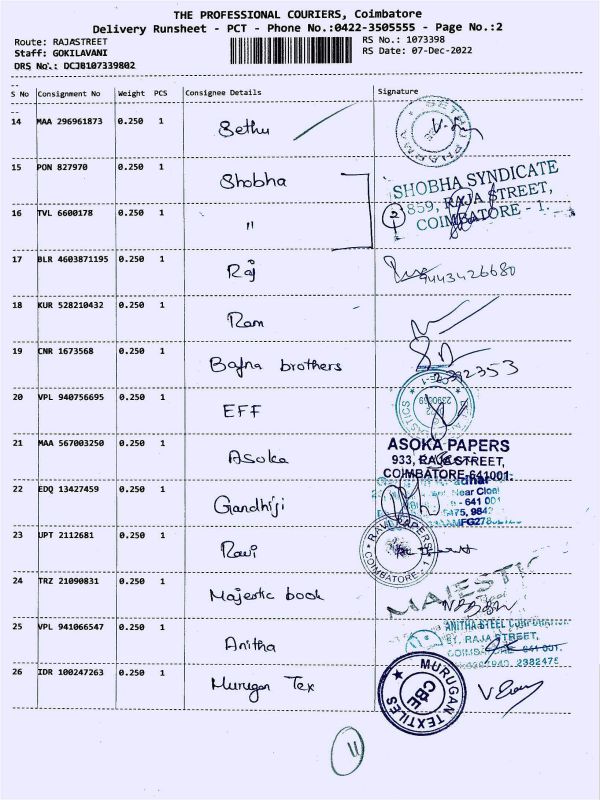 THE PROFESSIONAL COURIERS, Coimbatore
Delivery Runsheet - PCT - Phone No.:0422-3505555 - Page No.:2
Route: RAJASTREET
RS No.: 1073398
Staff: GOKILAVANI
RS Date: 07-Dec-2022
DRS No.: DCJ8107339802
S No Consignment No Weight PCS Consignee Details Signature
14 MAA 296961873 0.250 1 Sethu
15 PON 827970 0.250 1 Shobha
SHOBHA SYNDICATE
859, RAJA STREET,
COIMBATORE - 1.
16 TVL 6600178 0.250 1 "
2
17 BLR 4603871195 0.250 1 Raj 9443426680
18 KUR 528210432 0.250 1 Ram
19 CNR 1673568 0.250 1 Bafna brothers
2392353
20 VPL 940756695 0.250 1 EFF
21 MAA 567003250 0.250 1 Asoka
ASOKA PAPERS
933, RAJA STREET,
COIMBATORE-641001.
22 EDQ 13427459 0.250 1 Gandhiji
23 UPT 2112681 0.250 1 Ravi
RAVI PAPERS
COIMBATORE - 1
24 TRZ 21090831 0.250 1 Majestic book
MAJESTIC
25 VPL 941066547 0.250 1 Anitha
ANITHA STEEL
RAJA STREET,
2382475
26 IDR 100247263 0.250 1 Murugan Tex
MURUGAN TEXTILES
CBE
11